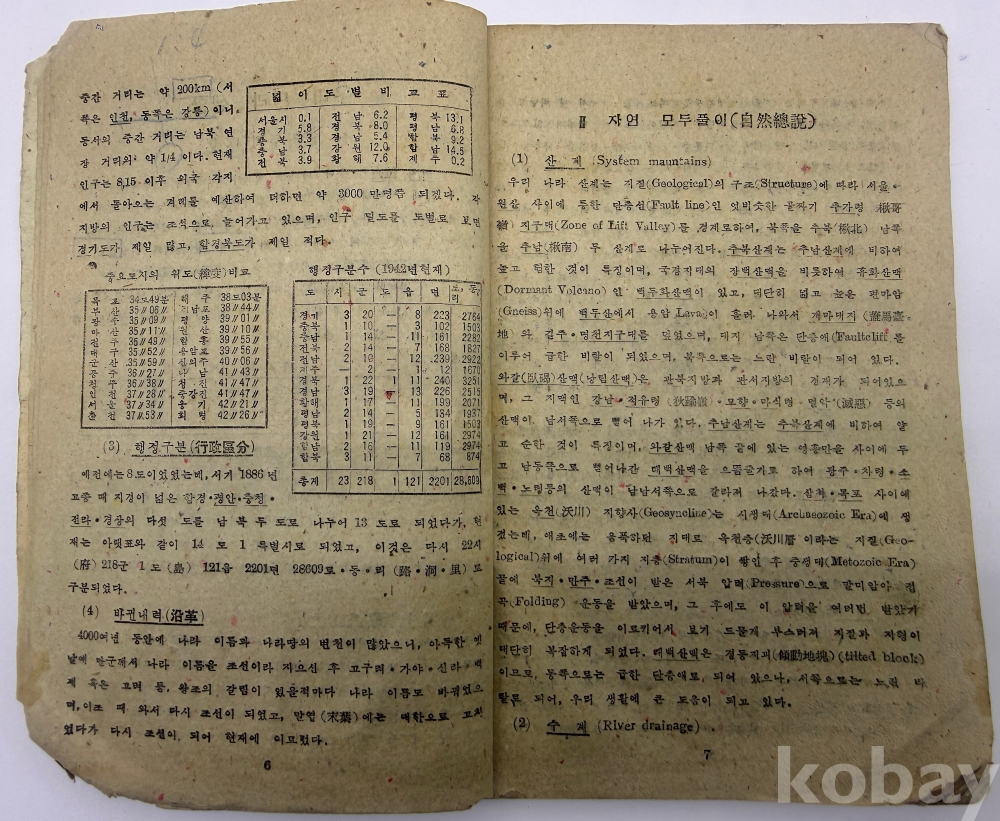 중간 거리는 약 200km (서
쪽은 인천, 동쪽은 강릉) 이니
동서의 중간 거리는 남북 연
장 거리의 약 1/4 이다. 현재
인구는 8,15 이후 외국 각지
에서 돌아오는 겨레를 예산하여 더하면 약 3000 만명쯤 되겠다. 각
지방의 인구는 조식으로 늘어가고 있으며, 인구 밀도를 도별로 보면
경기도가 제일 많고, 함경북도가 제일 적다.
넓이도별비교표
서울시 0.1 전남 6.2 평북 13.1
경기 5.8 경북 8.0 평남 6.8
충북 3.3 경남 5.4 함북 9.2
충남 3.7 강원 12.0 함남 14.5
전북 3.9 황해 7.6 제주 0.2
중요도시의 위도(緯度)비교
목포 34도49분 해주 38도03분
부산 35〃06〃 38〃44〃
광주 35〃09〃 평양 39〃01〃
마산 35〃11〃 원산 39〃10〃
진주 함흥 39〃55〃
대구 35〃52〃 용암포 39〃56〃
군산 35〃59〃 신의주 40〃06〃
공주 36〃27〃 나남 41〃43〃
청주 36〃38〃 청진 41〃47〃
인천 37〃28〃 중강진 41〃47〃
서울 37〃34〃 웅기 42〃21〃
춘천 37〃53〃 회령 42〃26〃
행정구분수 (1942년현재)
도 시 군 도 읍 면 로,동,리
경기 3 20 — 8 223 2764
충북 1 10 — 3 102 1503
충남 1 14 — 11 161 2282
전북 2 14 — 7 168 1837
전남 2 19 — 12 239 2922
제주 — 2 — 1 12 1670
경북 1 22 1 11 240 3251
경남 3 19 — 13 226 2515
황해 1 17 — 11 199 2071
평남 2 14 — 5 134 1937
평북 1 19 — 9 161 1503
강원 1 21 — 12 161 2974
함남 2 16 — 11 119 2974
함북 3 11 — 7 68 874
총계 23 218 1 121 2201 28,609
(3) 행정구분(行政區分)
예전에는 8도이었었는데, 서기 1886 년
고종 때 지경이 넓은 함경·평안·충청·
전라·경상의 다섯 도를 남 북 두 도로 나누어 13 도로 되었다가, 현
재는 아랫표와 같이 14 도 1 특별시로 되었고, 이것은 다시 22시
(府) 218군 1 도 (島) 121읍 2201면 28609로·동·리 (路·洞·里) 로
구분되었다.
(4) 바뀐내력(沿革)
4000여년 동안에 나라 이름과 나라땅의 변천이 많았으니, 아득한 옛
날에 단군께서 나라 이름을 조선이라 지으신 후 고구려·가야·신라·백
제 혹은 고려 등, 왕조의 갈림이 있을적마다 나라 이름도 바뀌었으
며, 이조 때 와서 다시 조선이 되었고, 말엽(末葉)에는 대한으로 고치
었다가 다시 조선이 되어 현재에 이르렀다.
6
Ⅱ 자연 모두풀이(自然總說)
(1) 산계 (System mauntains)
우리 나라 산계는 지질(Geological)의 구조(Structure)에 따라 서울·
원산 사이에 통한 단층선(Fault line)인 엇비슷한 골짜기 추가령 楸哥
嶺 지구대(Zone of Lift Valley)를 경계로하여, 북쪽을 추북(楸北) 남쪽
을 추남(楸南) 두 산계로 나누어진다. 추북산계는 추남산계에 비하여
높고 험한 것이 특징이며, 국경지대의 장백산맥을 비롯하여 휴화산맥
(Dormant Volcano) 인 백두화산맥이 있고, 대단히 넓고 높은 편마암
(Gneiss)위에 백두산에서 용암 Lava)이 흘러 나와서 개마대지 (蓋馬臺·
地) 와 길주·명천지구대를 덮었으며, 대지 남쪽은 단층애(Faultcliff 를
이루어 급한 비탈이 되었으며, 북쪽으로는 느린 비탈이 되어 있다.
와갈(臥碣)산맥(낭림산맥)은 관북지방과 관서지방의 경계가 되어있으
며, 그 지맥인 강남·적유령 (狄踰嶺·묘향·마식령·멸악 (滅惡) 등의
산맥이 남서쪽으로 뻗어 나가 있다. 추남산계는 추북산계에 비하여 얕
고 순한 것이 특징이며, 와갈산맥 남쪽 끝에 있는 영흥만을 사이에 두
고 남동쪽으로 뻗어나간 태백산맥을 으뜸줄기로 하여 광주·차령·소
백·노령등의 산맥이 남남서쪽으로 갈라져 나갔다. 삼척·목포 사이에
있는 옥천(沃川) 지향사(Geosyncline)는 시생대(Archaeozoic Era)에 생
겼는데, 애초에는 움푹하던 지대로 옥천층(沃川層 이라는 지질(Geo-
logical)위에 여러 가지 지층(Stratum)이 쌓인 후 중생대(Metozoic Era)
끝에 북지·만주·조선이 받은 서북 압력(Pressure)으로 말미암아 접
곡(Folding) 운동을 받았으며, 그 후에도 이 압력을 여러번 받았기
때문에, 단층운동을 이르키어서 보기 드물게 부스러져 지질과 지형이
대단히 복잡하게 되었다. 태백산맥은 경동지괴(傾動地塊) (tilted block)
이므로, 동쪽으로는 급한 단층애로 되어 있으나, 서쪽으로는 느린 비
탈로 되어, 우리 생활에 큰 도움이 되고 있다.
(2) 수계 (River drainage)
7
kobay